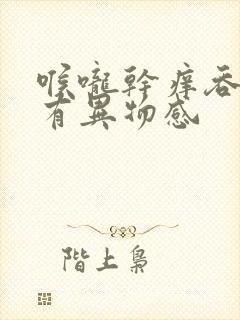 喉嚨幹癢吞
有異物感
階上梟